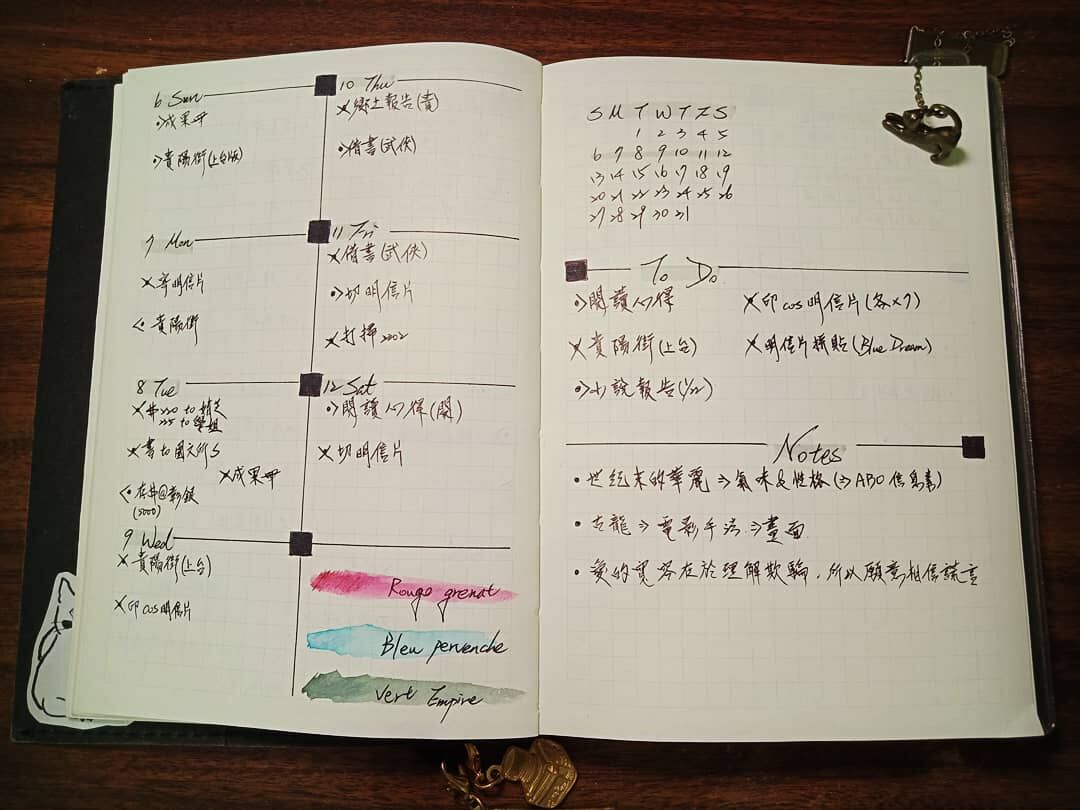 6 Sun
成果冊
貴陽街(上台版)
7 Mon
寄明信片
貴陽街
8 Tue
220 to
225 to 學姐
書to國文所S
成果冊
存@彰銀
(5000)
9 Wed
貴陽街(上台)
印cos明信片
10 Thu
鄉土報告(貴)
借書(武俠)
11 Fri
借書(武俠)
切明信片
打掃2002
12 Sat
閱讀心得(閱)
切明信片
Rouge grenat
Bleu pervenche
Vert Empire
S M T W T F S
1 2 3 4 5
6 7 8 9 10 11 12
13 14 15 16 17 18 19
20 21 22 23 24 25 26
27 28 29 30 31
To Do
閱讀心得
印cos明信片(各×7)
貴陽街(上台)
明信片拼貼(Blue Dream)
小說報告(1/22)
Notes
世紀末的華麗⇒氣味&性格(⇒ABO信息素)
古龍⇒電影手法⇒畫面
愛的寬容在於理解欺騙,所以願意相信謊言